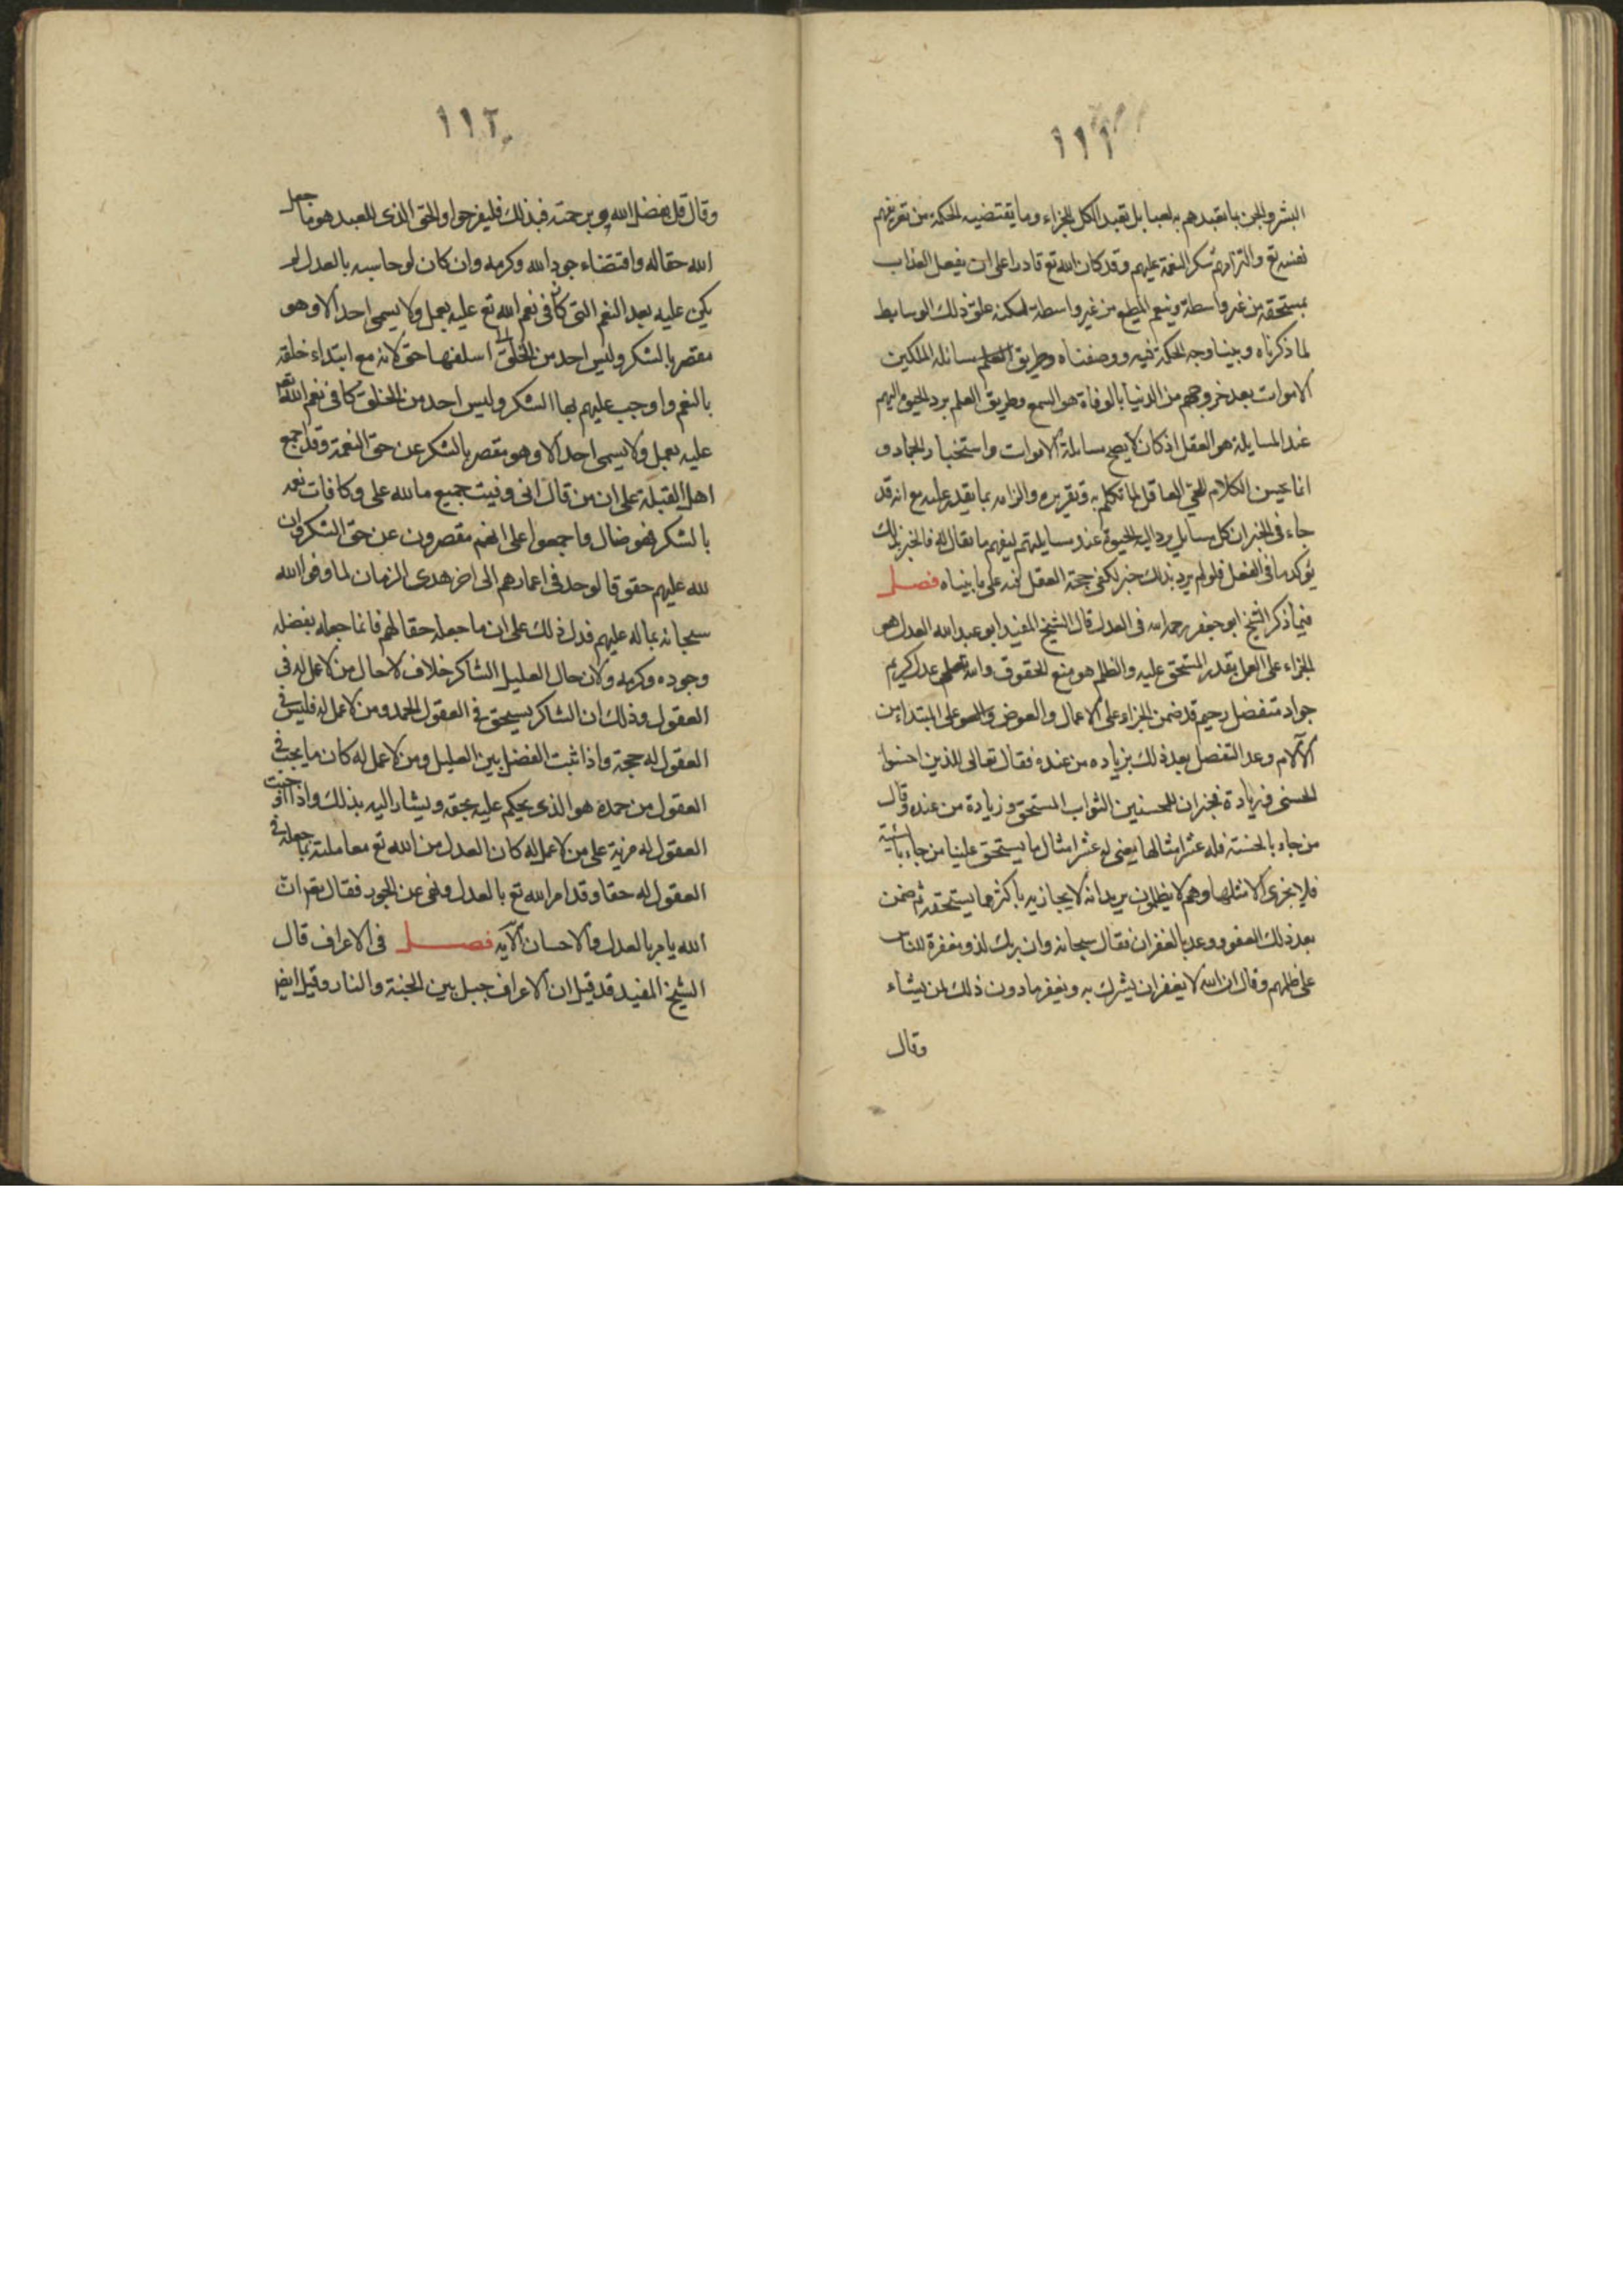 ١١١
البشر والجن بما تعبدهم به لعبا بل تعبد الكل للجزاء وما يقتضيه الحكمة من تعريفهم
نفسه تع والتزامهم شكر النعمة عليهم وقد كان الله تع قادرا على ان يفعل العذاب
بمستحقه من غير واسطة وينعم المطيع من غير واسطة لكنه علق ذلك الوسايط
لما ذكرناه وبينا وجه الحكمة فيه ووصفناه وطريق العلم مسائلة الملكين
الاموات بعد خروجهم من الدنيا بالوفاة هو السمع وطريق العلم برد الحيوة اليهم
عند المسايلة هو العقل اذ كان لا يصح مسائلة الاموات واستخبار الجماد و
انما يحسن الكلام للحي العاقل لما تكلم به وتقريره والزامه بما يقدر عليه مع انه قد
جاء في الخبر ان كل مسايل يرد اليه الحيوة عند مسايلتهم ليفهم ما يقال له فالخبر بذلك
يؤكد ما في العقل فلو لم يرد بذلك خبر لكفى حجة العقل فيه على ما بيناه فصل
فيما ذكر الشيخ ابو جعفر رحمه الله في العدل قال الشيخ المفيد ابو عبد الله العدل هو
الجزاء على العمل بقدر المستحق عليه والظلم هو منع الحقوق والله تعالى عدل كريم
جواد متفضل رحيم قد ضمن الجزاء على الاعمال والعوض على المبتداء من
الآلام وعد التفضل بعد ذلك بزيادة من عنده فقال تعالى للذين احسنوا
الحسنى وزيادة فخبر ان للمحسنين الثواب المستحق وزيادة من عنده وقال
من جاء بالحسنة فله عشر امثالها يعنى له عشر امثال ما يستحق علينا من جاء بالسيئة
فلا يجزى الا مثلها وهم لا يظلمون يريد انه لا يجازيه باكثر مما يستحقه ثم ضمن
بعد ذلك العفو ووعد بالغفران فقال سبحانه وان ربك لذو مغفرة للناس
على ظلمهم وقال ان الله لا يغفر ان يشرك به ويغفر ما دون ذلك لمن يشاء
وقال
١١٢
وقال قل بفضل الله وبرحمته فبذلك فليفرحوا والحق الذي للعبد هو ما جعل
الله حقا له واقتضاء جود الله وكرمه وان كان لو حاسبه بالعدل لم
يكن عليه بعد النعم التي كان في نعم الله تع عليه بعمل ولا يسمى احد الا وهو
مقصر بالشكر وليس احد من الخلق اسلفها حق لانه مع ابتداء خلقه
بالنعم واوجب عليهم بها الشكر وليس احد من الخلق كافى نعم الله تعم
عليه بعمل ولا يسمى احد الا وهو مقصر بالشكر عن حق النعمة وقد اجمع
اهل القبلة على ان من قال انى وفيت جميع ما لله على وكافات نعمه
بالشكر فهو ضال واجمعوا على انهم مقصرون عن حق الشكر وان
لله عليهم حقوقا لو حد في اعمارهم الى اخر هدى الزمان لما وفوا الله
سبحانه بما له عليهم فدل ذلك على ان ما جعله حقا لهم فانما جعله بفضله
وجوده وكرمه ولان حال العليل الشاكر خلاف لا حال من لا عمل له في
العقول وذلك ان الشاكر يستحق في العقول الحمد ومن لا عمل له فليس في
العقول له حجة واذا ثبت الفضل بين العليل ومن لا عمل له كان ما يجب في
العقول من حمده هو الذي يحكم عليه بحقه ويشار اليه بذلك واذا اوجبت
العقول له مزية على من لا عمل له كان العدل من الله تع معاملته بما جعله في
العقول له حقا وقد امر الله تع بالعدل ونهى عن الجور فقال تعم ان
الله يامر بالعدل والاحسان الآية فصل في الاعراف قال
الشيخ المفيد قد قيل ان الاعراف جبل بين الجنة والنار وقيل ايضا